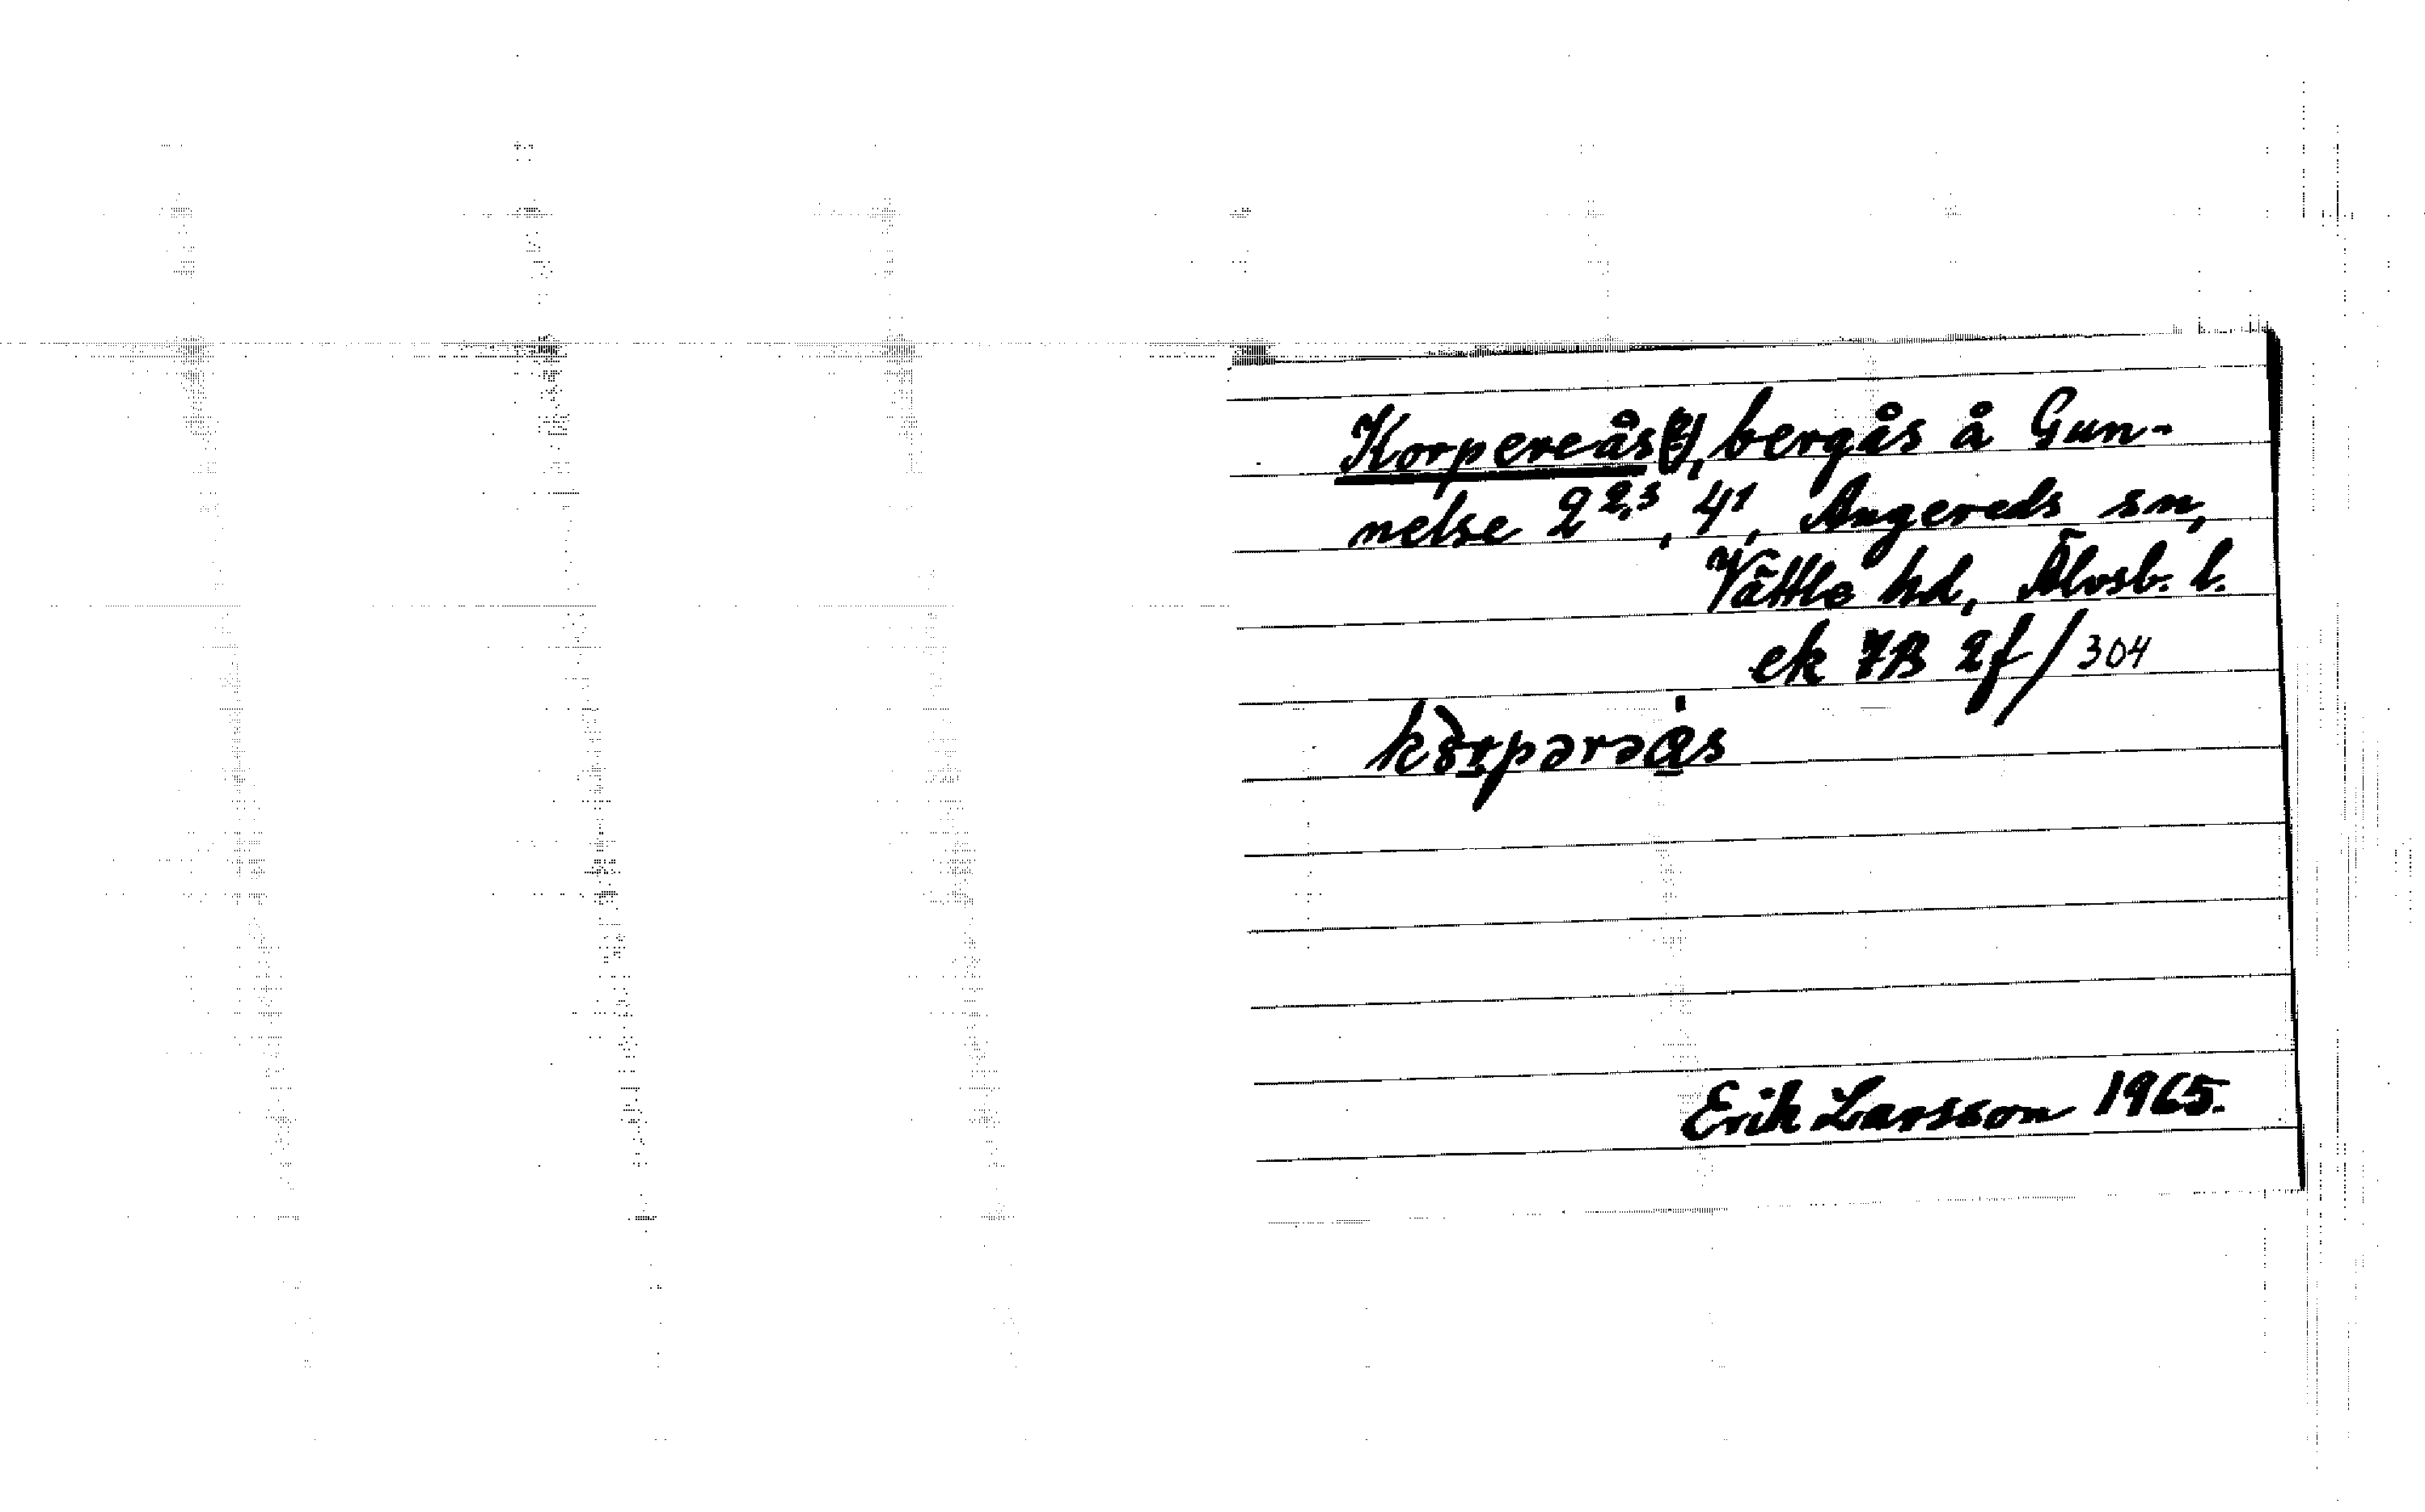 Korpereås(e), bergås å Gun-
nelse 2²,³, 4¹, Angereds sn,
Vättle hd, Älvsb. l.
ek 7B 2f/304
kɔrpərəås
Erik Larsson 1965.